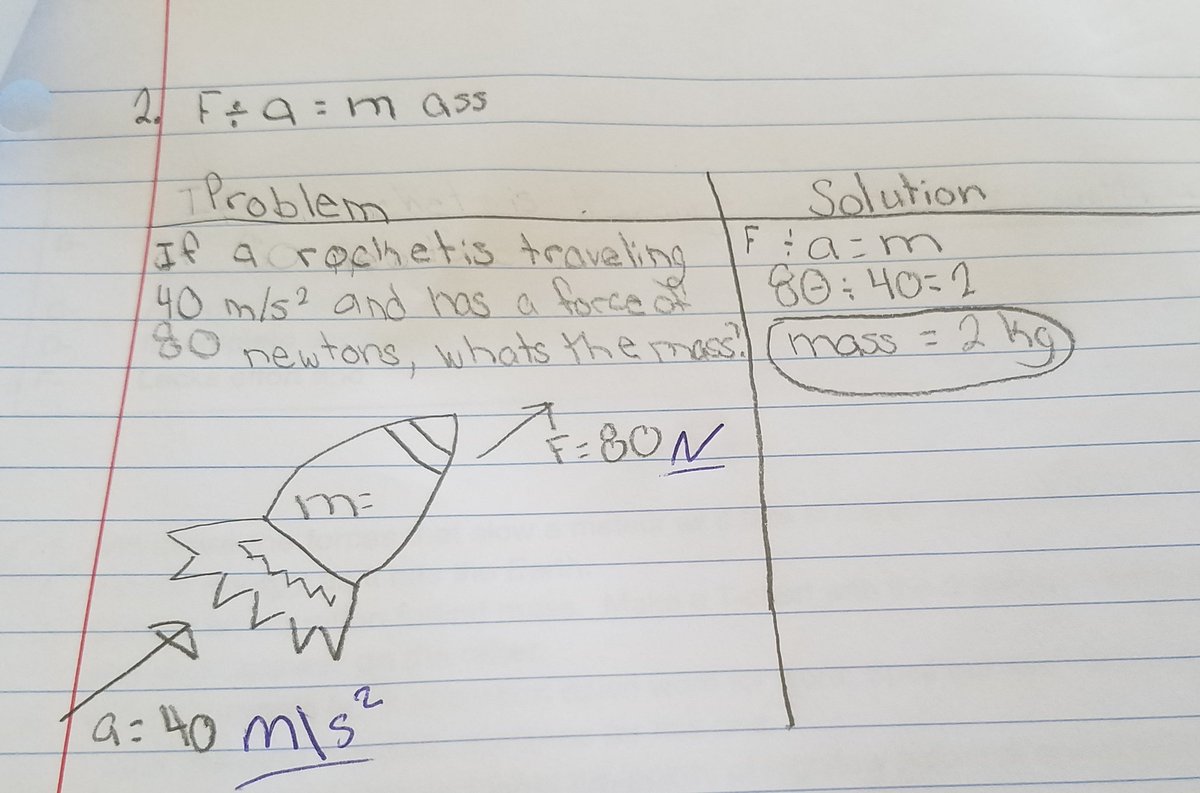 2. F÷a=m ass
Problem
If a rocket is traveling
40 m/s² and has a force of
80 newtons, whats the mass?
Solution
F÷a=m
80÷40=2
mass = 2 kg
F=80 N
m=
a=40 m/s²